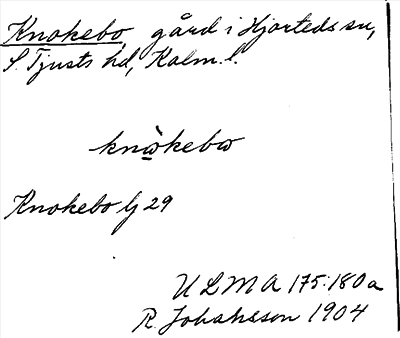 Knokebo, gård i Hjorteds sn,
S. Tjusts hd, Kalm. l.
knòkebω
Knokebo lj 29
ULMA 175:180a
R. Johansson 1904